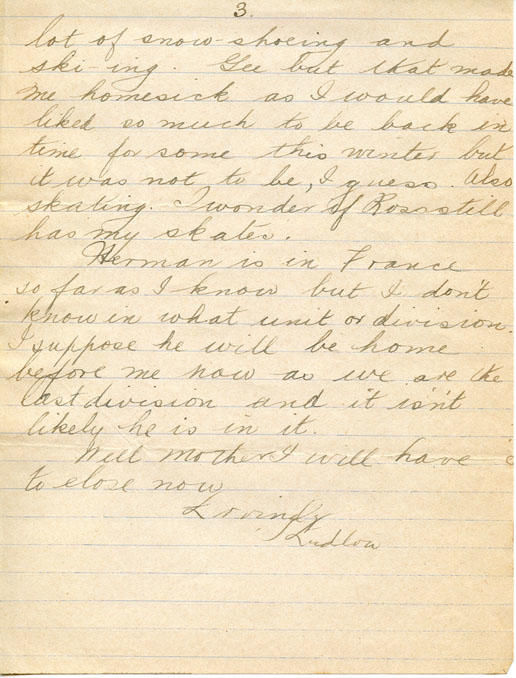 3.
lot of snow-shoeing and
ski-ing. Gee but that made
me homesick as I would have
liked so much to be back in
time for some this winter but
it was not to be, I guess. Also
skating. I wonder if Ross still
has my skates.
Herman is in France
so far as I know but I don't
know in what unit or division.
I suppose he will be home
before me now as we are the
last division and it isn't
likely he is in it.
Well Mother I will have
to close now
Lovingly
Ludlow